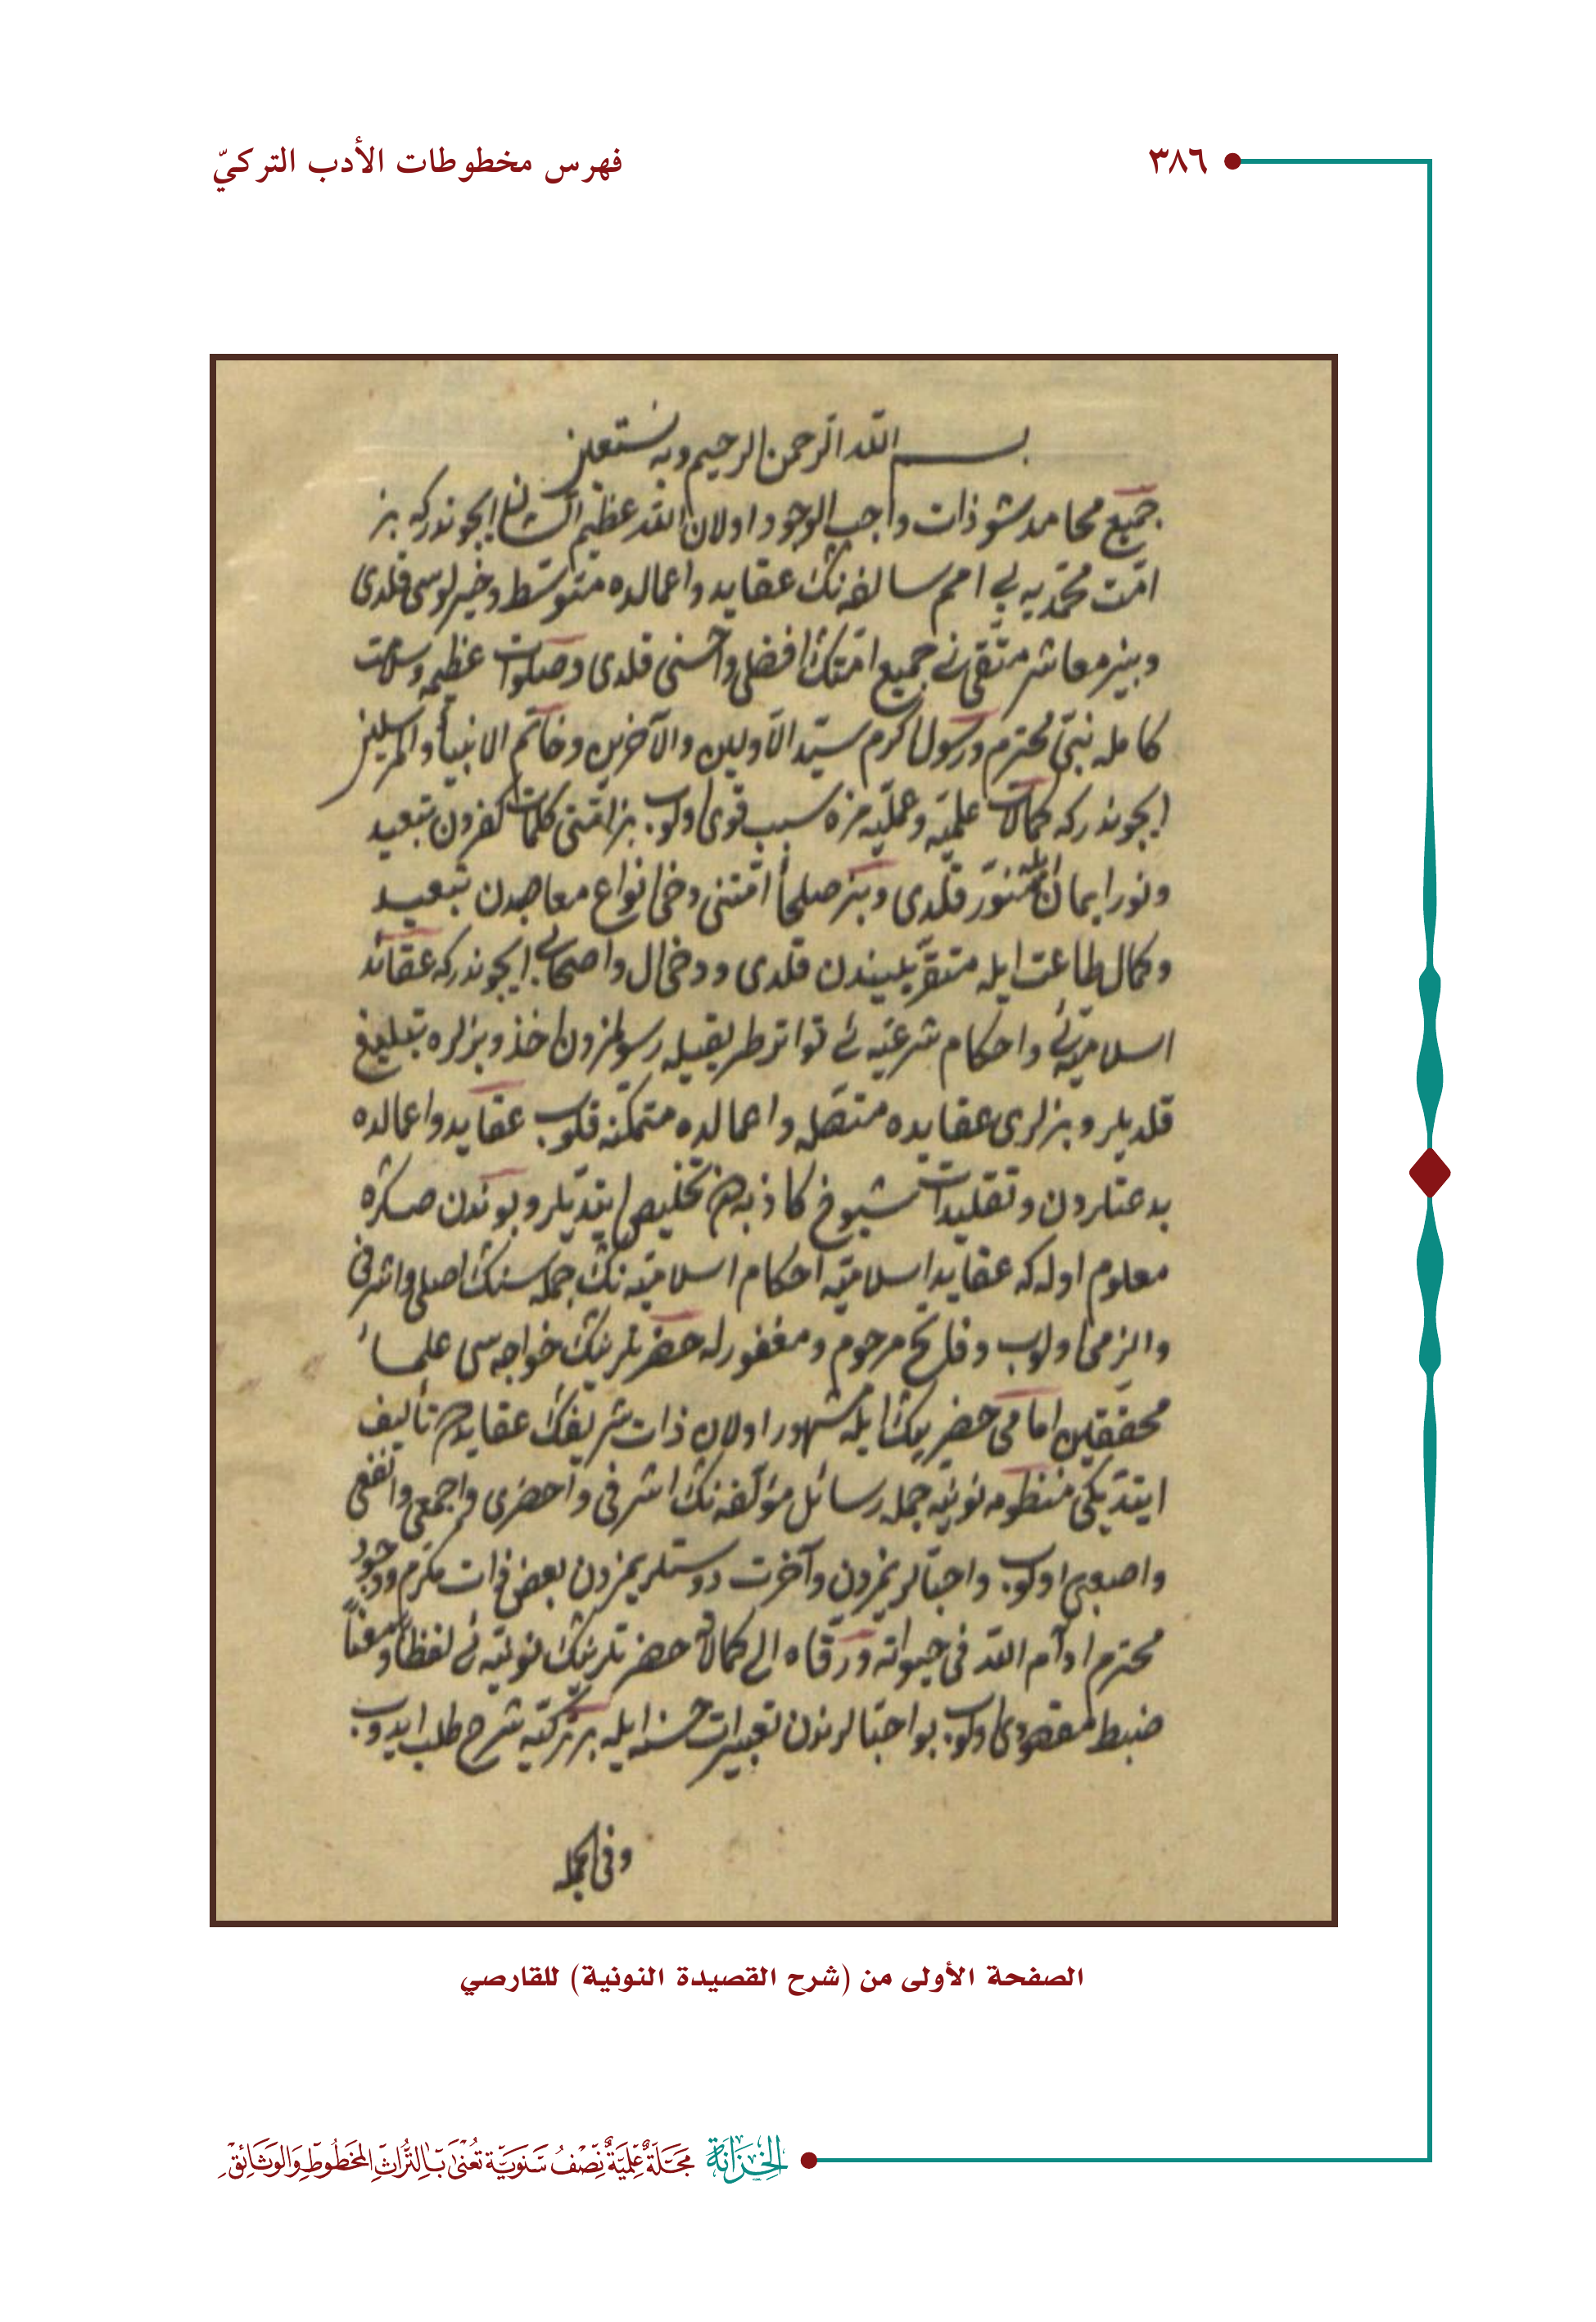 ٣٨٦
فهرس مخطوطات الأدب التركيّ
بسم الله الرحمن الرحيم وبه نستعين
جميع محامد شو ذات واجب الوجود اولان الله عظيم الشان ايچوندركه بز
امّت محمّديه يى امم سالفه نك عقايد واعمالده متوسّط وخيرلوسى قلدى
وبيز معاشر متّقى نى جميع امّتك افضلى واحسنى قلدى وصلوات عظيمه وسلامت
كامله نبىّ محترم ورسول اكرم سيّد الاوّلين والآخرين وخاتم الانبيأ والمرسلين
ايچوندركه كمالات علميّه وعمليّه مزه سبب قوى اولوب بز امّتنى كفردن تبعيد
ونور ايمان ايله منوّر قلدى وبز صلحأ امّتنى دخى انواع معاصدن تبعيد
وكمال طاعت ايله متقرّبلييندن قلدى ودخى ال واصحابى ايچوندركه عقائد
اسلاميّه ئى واحكام شرعيّه ئى تواتر طريقيله رسولمزدن اخذ وبزلره تبليغ
قلديلر وبزلرى عقايده متصله واعمالده متمكنه قلوب عقايد واعمالده
بدعتلردن وتقليدات شيوخ كاذبه دن تخليص ايتديلر وبوندن صكره
معلوم اوله كه عقايد اسلاميّه احكام اسلاميّه نك جمله سنك اصلى واشرفى
والزمى اولوب وفاتح مرحوم ومغفور له حضرتلرينك خواجه سى علماء
محقّقين امامى حضر بيك ايله مشهور اولان ذات شريفك عقايده تأليف
ايتديكى منظومه نونيّه جمله رسائل مؤلّفه نك اشرفى واحضرى واجمعى وانفعى
واصعبى اولوب واحبّالريمزدن وآخرت دوستلريمزدن بعض ذات مكرم ووجود
محترم ادام الله فى حيواته ورقاه الى كمالاته حضرتلرينك نونيّه ئى لفظاً ومعناً
ضبط مقصودى اولوب بو احبّالرندن تعبيرات حسنه ايله بر تركيّه شرح طلب ايدوب
وفى الجمله
الصفحة الأولى من (شرح القصيدة النونية) للقارصي
الخِزَانَة مَجَلَّةٌ عِلْمِيَّةٌ نِصْفُ سَنَوِيَّة تُعْنَى بِالتُّرَاثِ المَخْطُوطِ وَالوَثَائِق